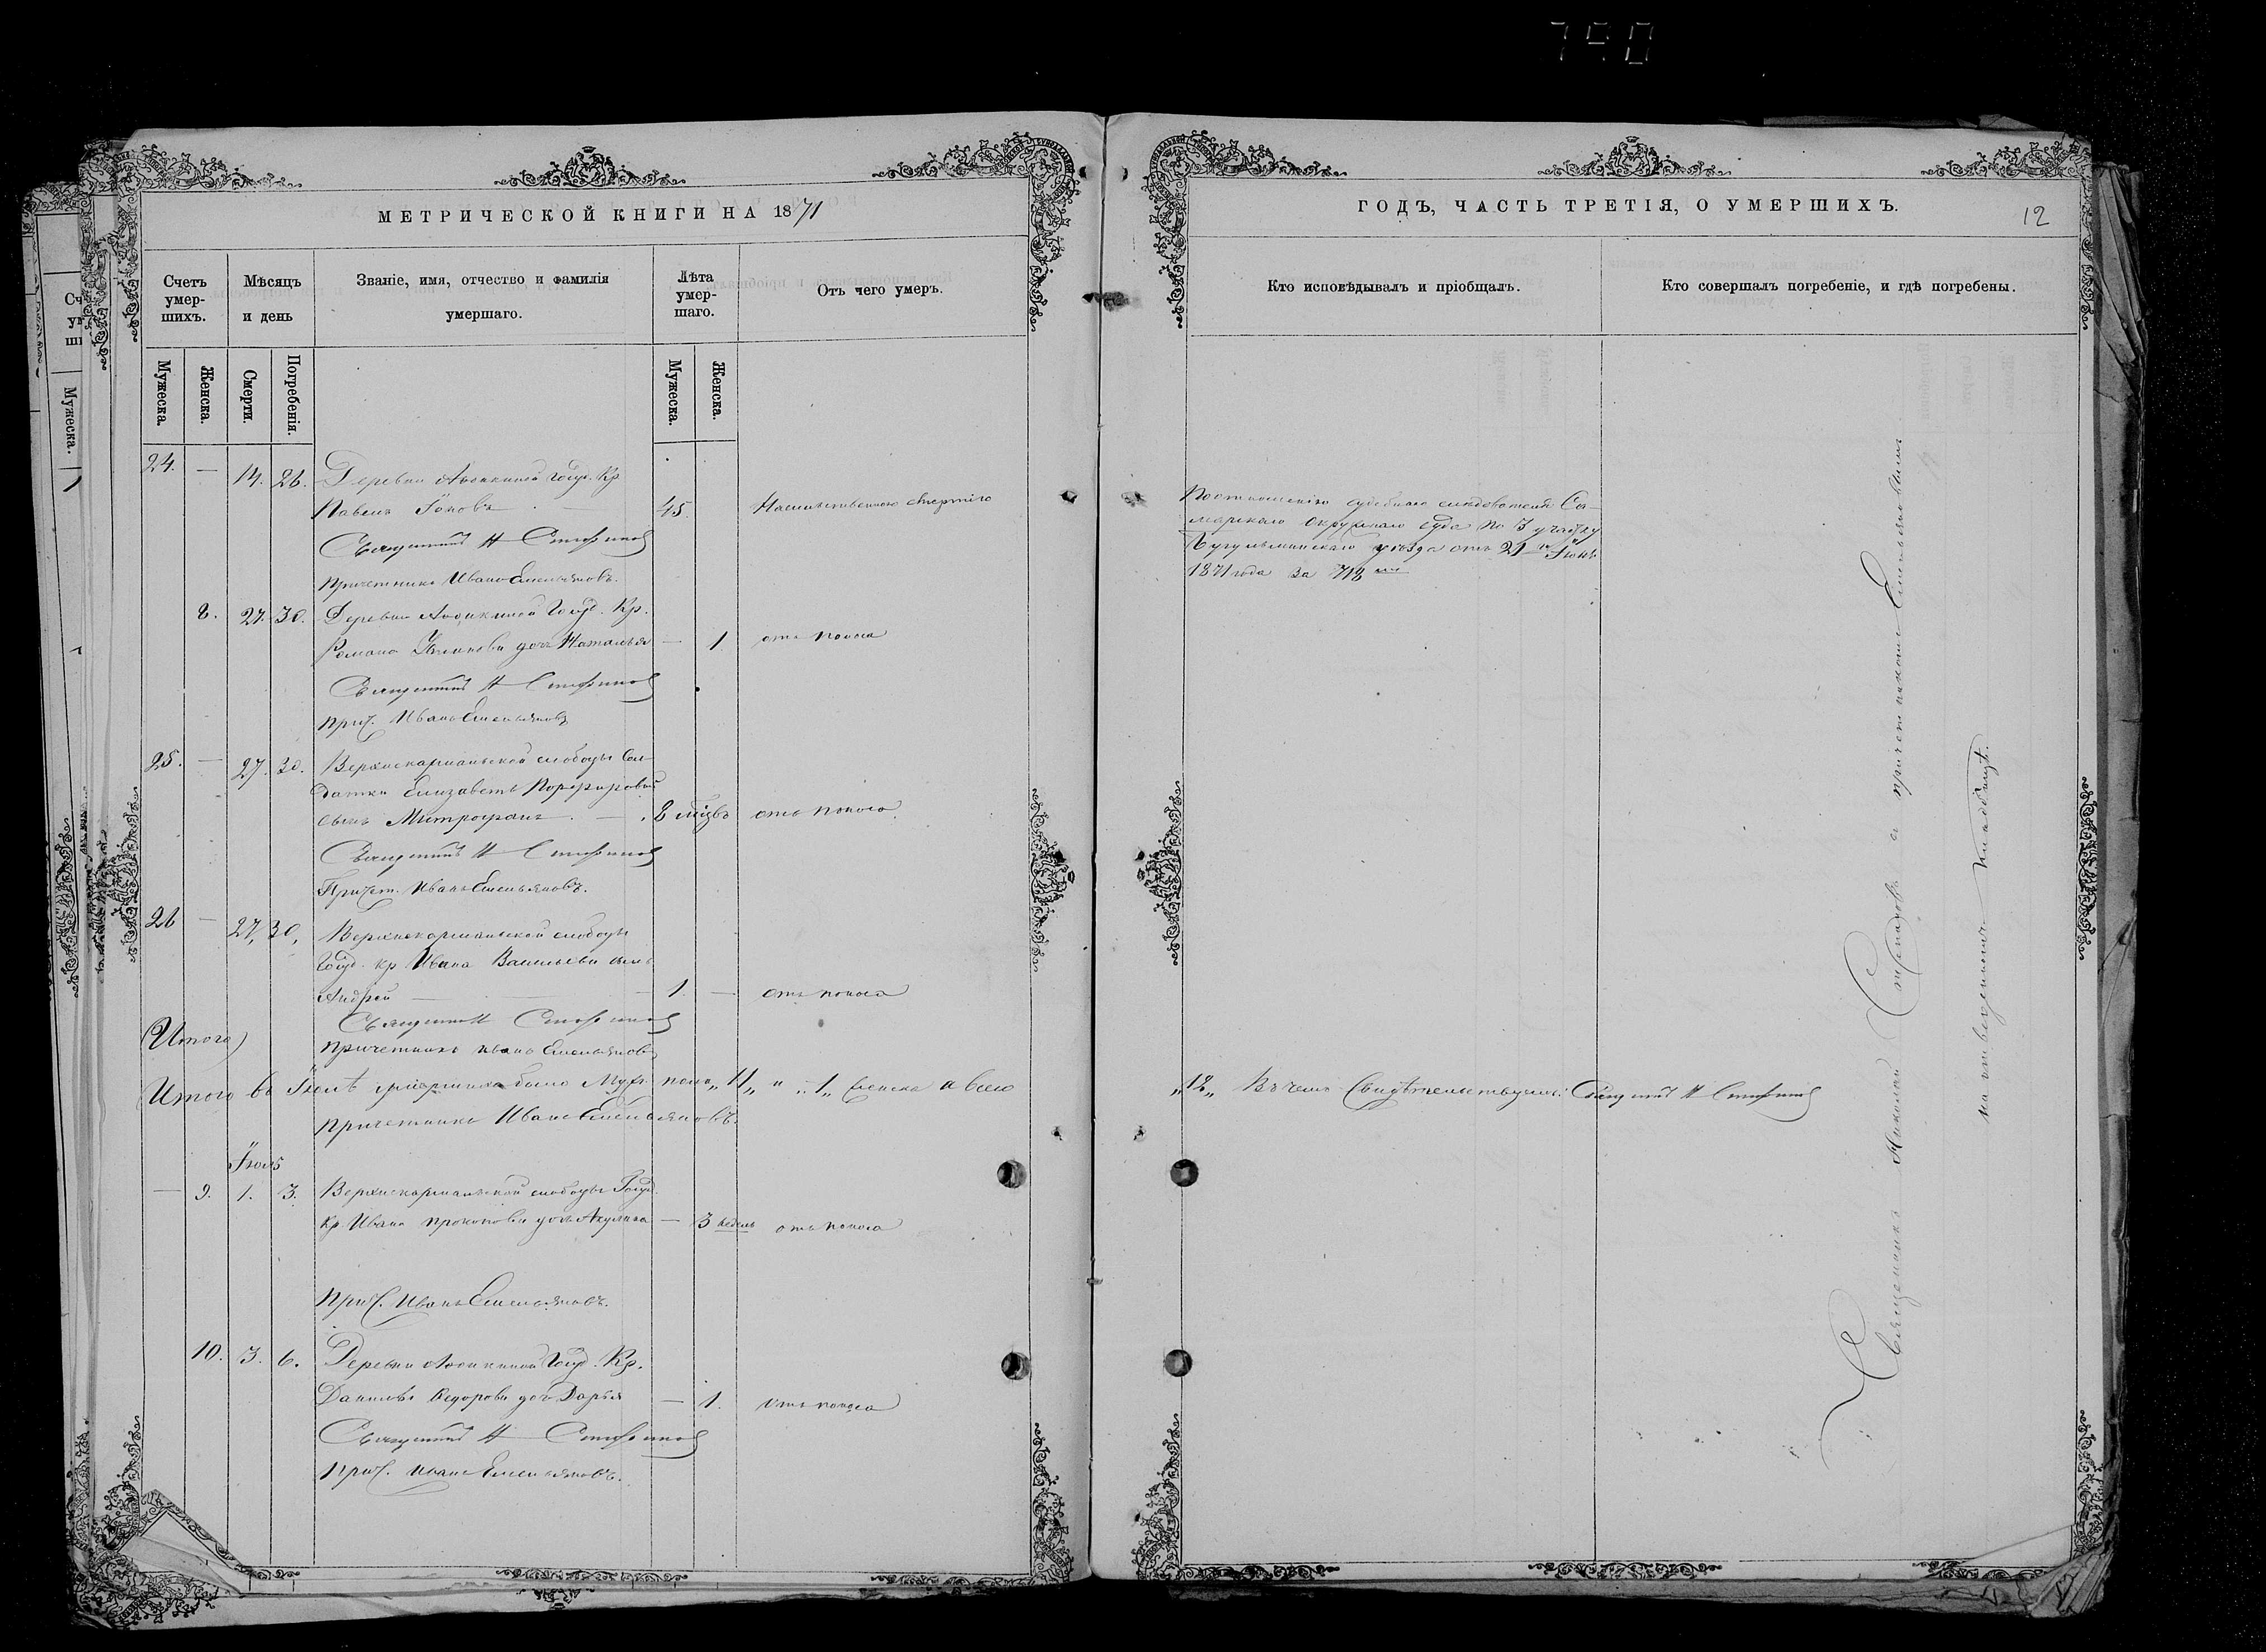 МЕТРИЧЕСКОЙ КНИГИ НА 1871
Счетъ умер-шихъ.
Мѣсяцъ и день
Званіе, имя, отчество и фамилія умершаго.
Лѣта умер-шаго.
Отъ чего умеръ.
Мужеска.
Женска.
Смерти.
Погребенія.
Мужеска.
Женска.
24. — 14. 26. Деревни Госуд. Кр
Павелъ 45. Насильственною смертію
Священникъ Н
Причетникъ Иванъ Емельяновъ.
8. 27. 30. Деревни Госуд. Кр.
Романа дочь Наталья — 1. отъ поноса
Священникъ Н
Прич. Иванъ Емельяновъ
25. — 27. 30. слободы Сол-
датки Елизаветы Порфировой
сынъ Митрофанъ. — 8 мѣсцвъ отъ поноса.
Священникъ Н
Причет. Иванъ Емельяновъ.
26 — 27. 30. слободы
Госуд. кр Ивана Васильева сынъ
Андрей — 1. — отъ поноса
Священникъ Н
Причетникъ Иванъ Емельяновъ
(Итого)
Итого въ было Муж. пола „11„ и „1„ женска а всего
причетникъ Иванъ Емельяновъ.
Іюль
— 9. 1. 3. слободы Госуд.
Кр Ивана Прокопова дочь Акулина — 3 недель отъ поноса
Прич. Иванъ Емельяновъ.
10. 3. 6. Деревни Госуд. Кр.
Данилы Ѳедорова дочь Дарья — 1. отъ поноса
Священникъ Н
Прич. Иванъ Емельяновъ.
ГОДЪ, ЧАСТЬ ТРЕТІЯ, О УМЕРШИХЪ.
12
Кто исповѣдывалъ и пріобщалъ.
Кто совершалъ погребеніе, и гдѣ погребены.
По отношенію судебнаго слѣдователя Са-
марскаго Окружнаго суда по 3 участку
Бугульминскаго уѣзда отъ 21 Іюня
1871 года за 718
„12„ Въ чемъ свидѣтельствуемъ: Священникъ Н
Священникъ Николай съ причетникомъ Емельяновымъ
на отведенномъ кладбищѣ.